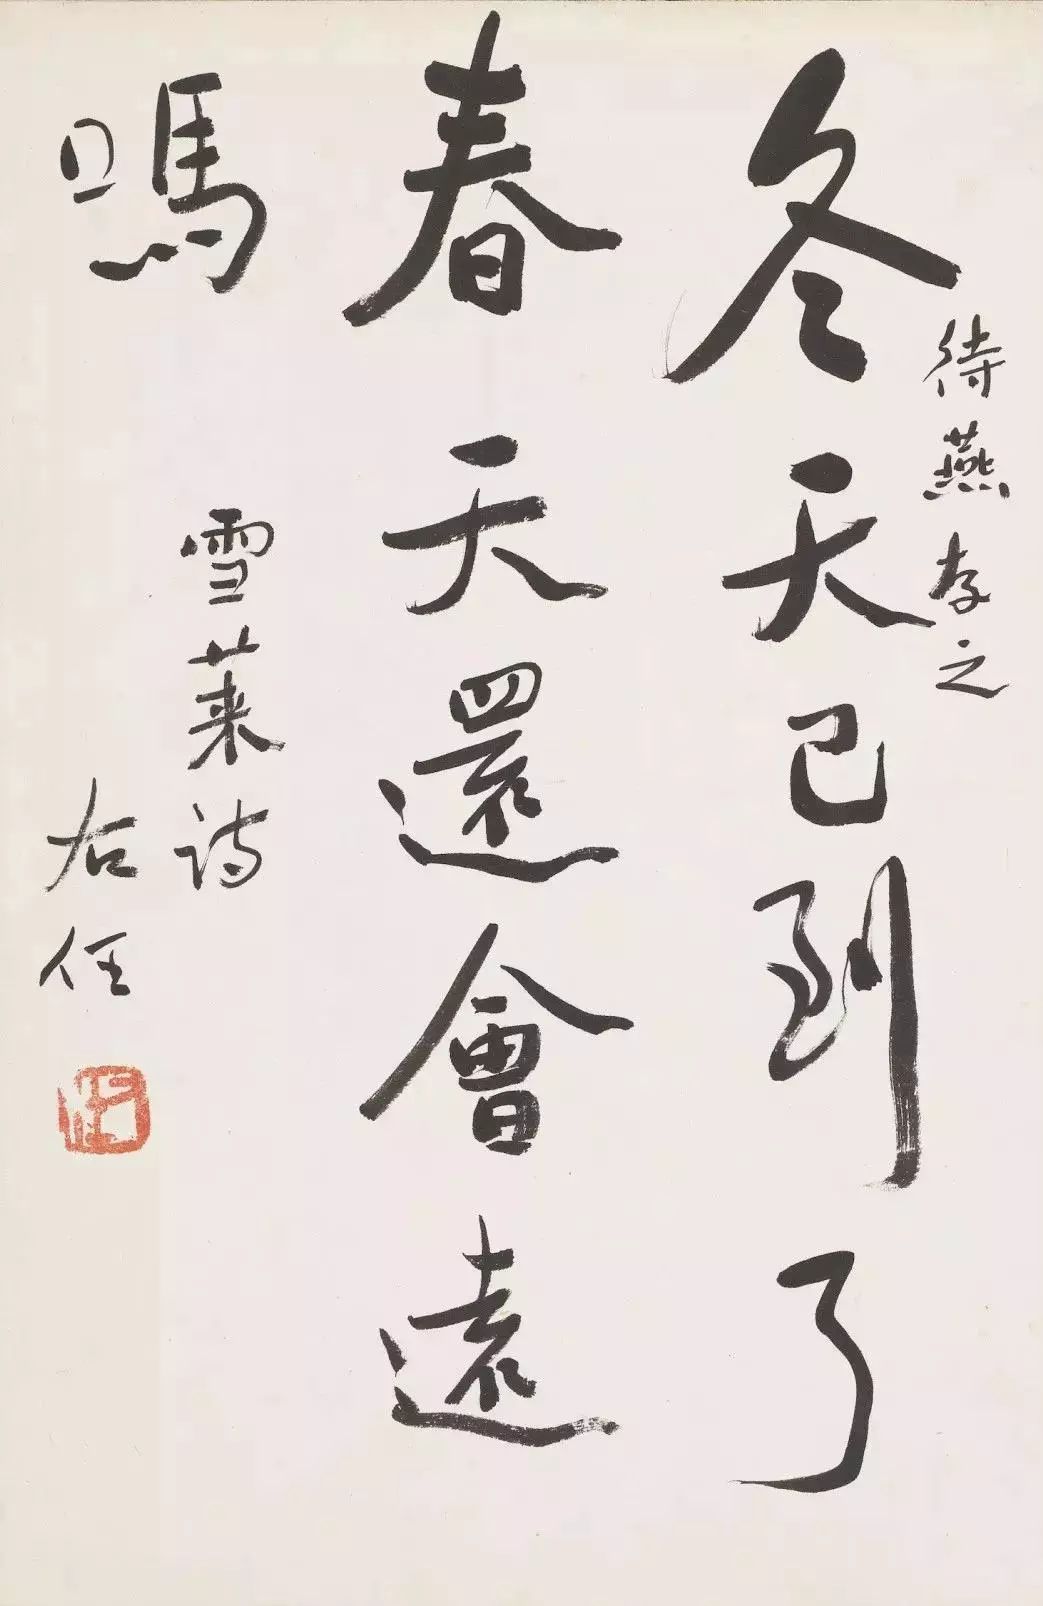 待燕存之
冬天已到了
春天還會遠
嗎
雪莱詩
右任